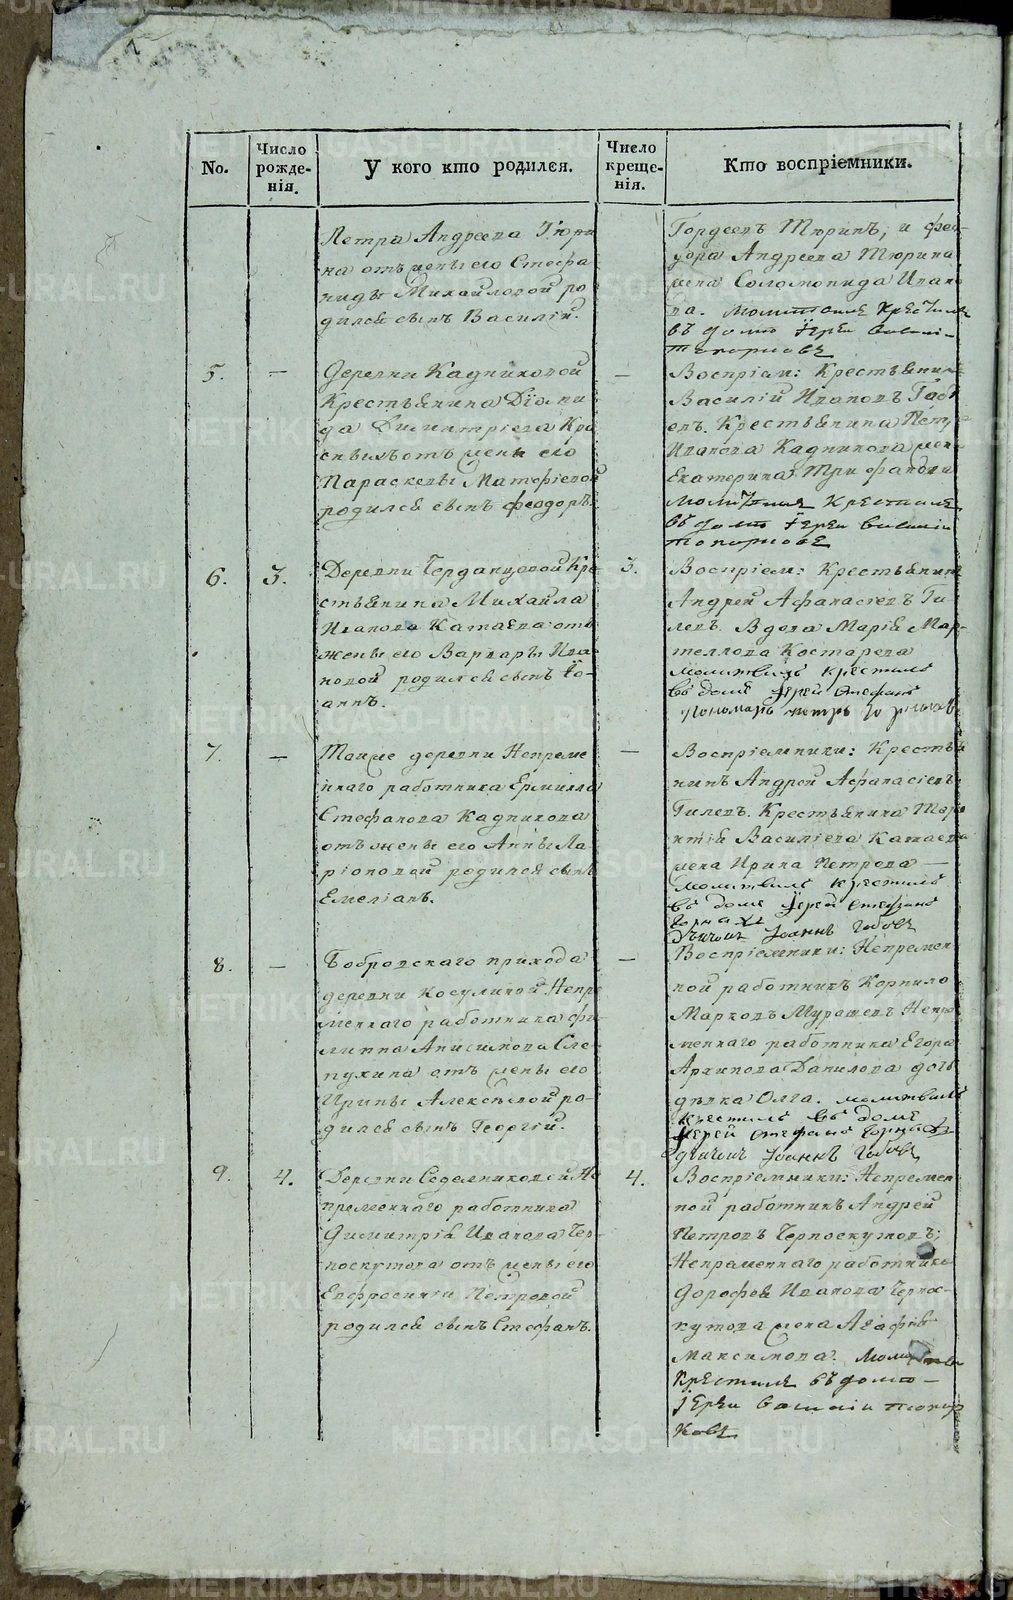 No.
Число рожде-нія.
У кого кто родился.
Число креще-нія.
Кто воспріемники.
Петра Андреева Тюри
на отъ жены его Стефа
ниды Михайловой ро
дился сынъ Василій.
Гордеевъ Тюринъ, и Фео-
дора Андреева Тюрина
жена Соломонида Ивано
ва. Молитвилъ Крестилъ
въ домѣ Іерей Василій
Топорковъ
5. —
Деревни Кадниковой
Крестьянина Діоми
да Димитріева
отъ жены его
Параскевы Матфіевой
родился сынъ Феодоръ.
—
Воспріем: Крестьянинъ
Василій Ивановъ
Крестьянина Петра
Иванова Кадникова жена
Екатерина Трифанова
Молитвилъ Крестилъ
въ домѣ Іерей Василій
Топорковъ
6. 3.
Деревни Черданцовой Кре
стьянина Михайла
Иванова Катаева отъ
жены его Варвары Ива
новой родился сынъ Іо-
аннъ.
3.
Воспріем: Крестьянинъ
Андрей Афанасіевъ Ги-
левъ. Вдова Марія Мар-
теллова Костарева
молитвилъ крестилъ
въ домѣ Іерей Стефанъ
Пономарь петръ
7. —
Тойже деревни Непреме
ннаго работника Ермилла
Стефанова Кадникова
отъ жены его Анны Ла
ріоновой родился сынъ
Емеліанъ.
—
Воспріемники: Крестья
нинъ Андрей Афанасіевъ
Гилевъ. Крестьянина
Василіева Катаева
жена Ирина Петрова —
молитвилъ крестилъ
въ домѣ Іерей Стефанъ
Дьячокъ Іоаннъ
8. —
Бобровскаго прихода
деревни Косулиной Непре
меннаго работника Фи
липпа Анисимова Сле-
пухина отъ жены его
Ирины Алексѣевой ро-
дился сынъ Георгій.
—
Воспріемники: Непремен
ной работникъ Корнило
Марковъ Мурашевъ Непре
меннаго работника Егора
Архипова Данилова дочь
дѣвка Олга. молитвилъ
крестилъ въ домѣ
Іерей Стефанъ
дьячокъ Іоаннъ
9. 4.
Деревни Седелниковой Не
пременнаго работника
Димитрія Иванова Чер-
носкутова отъ жены его
Евфросиніи Петровой
родился сынъ Стефанъ.
4.
Воспріемники: Непремен
ной работникъ Андрей
Петровъ Черноскутовъ;
Непраменнаго работника
Дорофея Иванова Чернос-
кутова жена Агафія
Максимова. Молитвилъ
Крестилъ въ домѣ —
Іерей Василій Топор
ковъ
METRIKI.GASO-URAL.RU